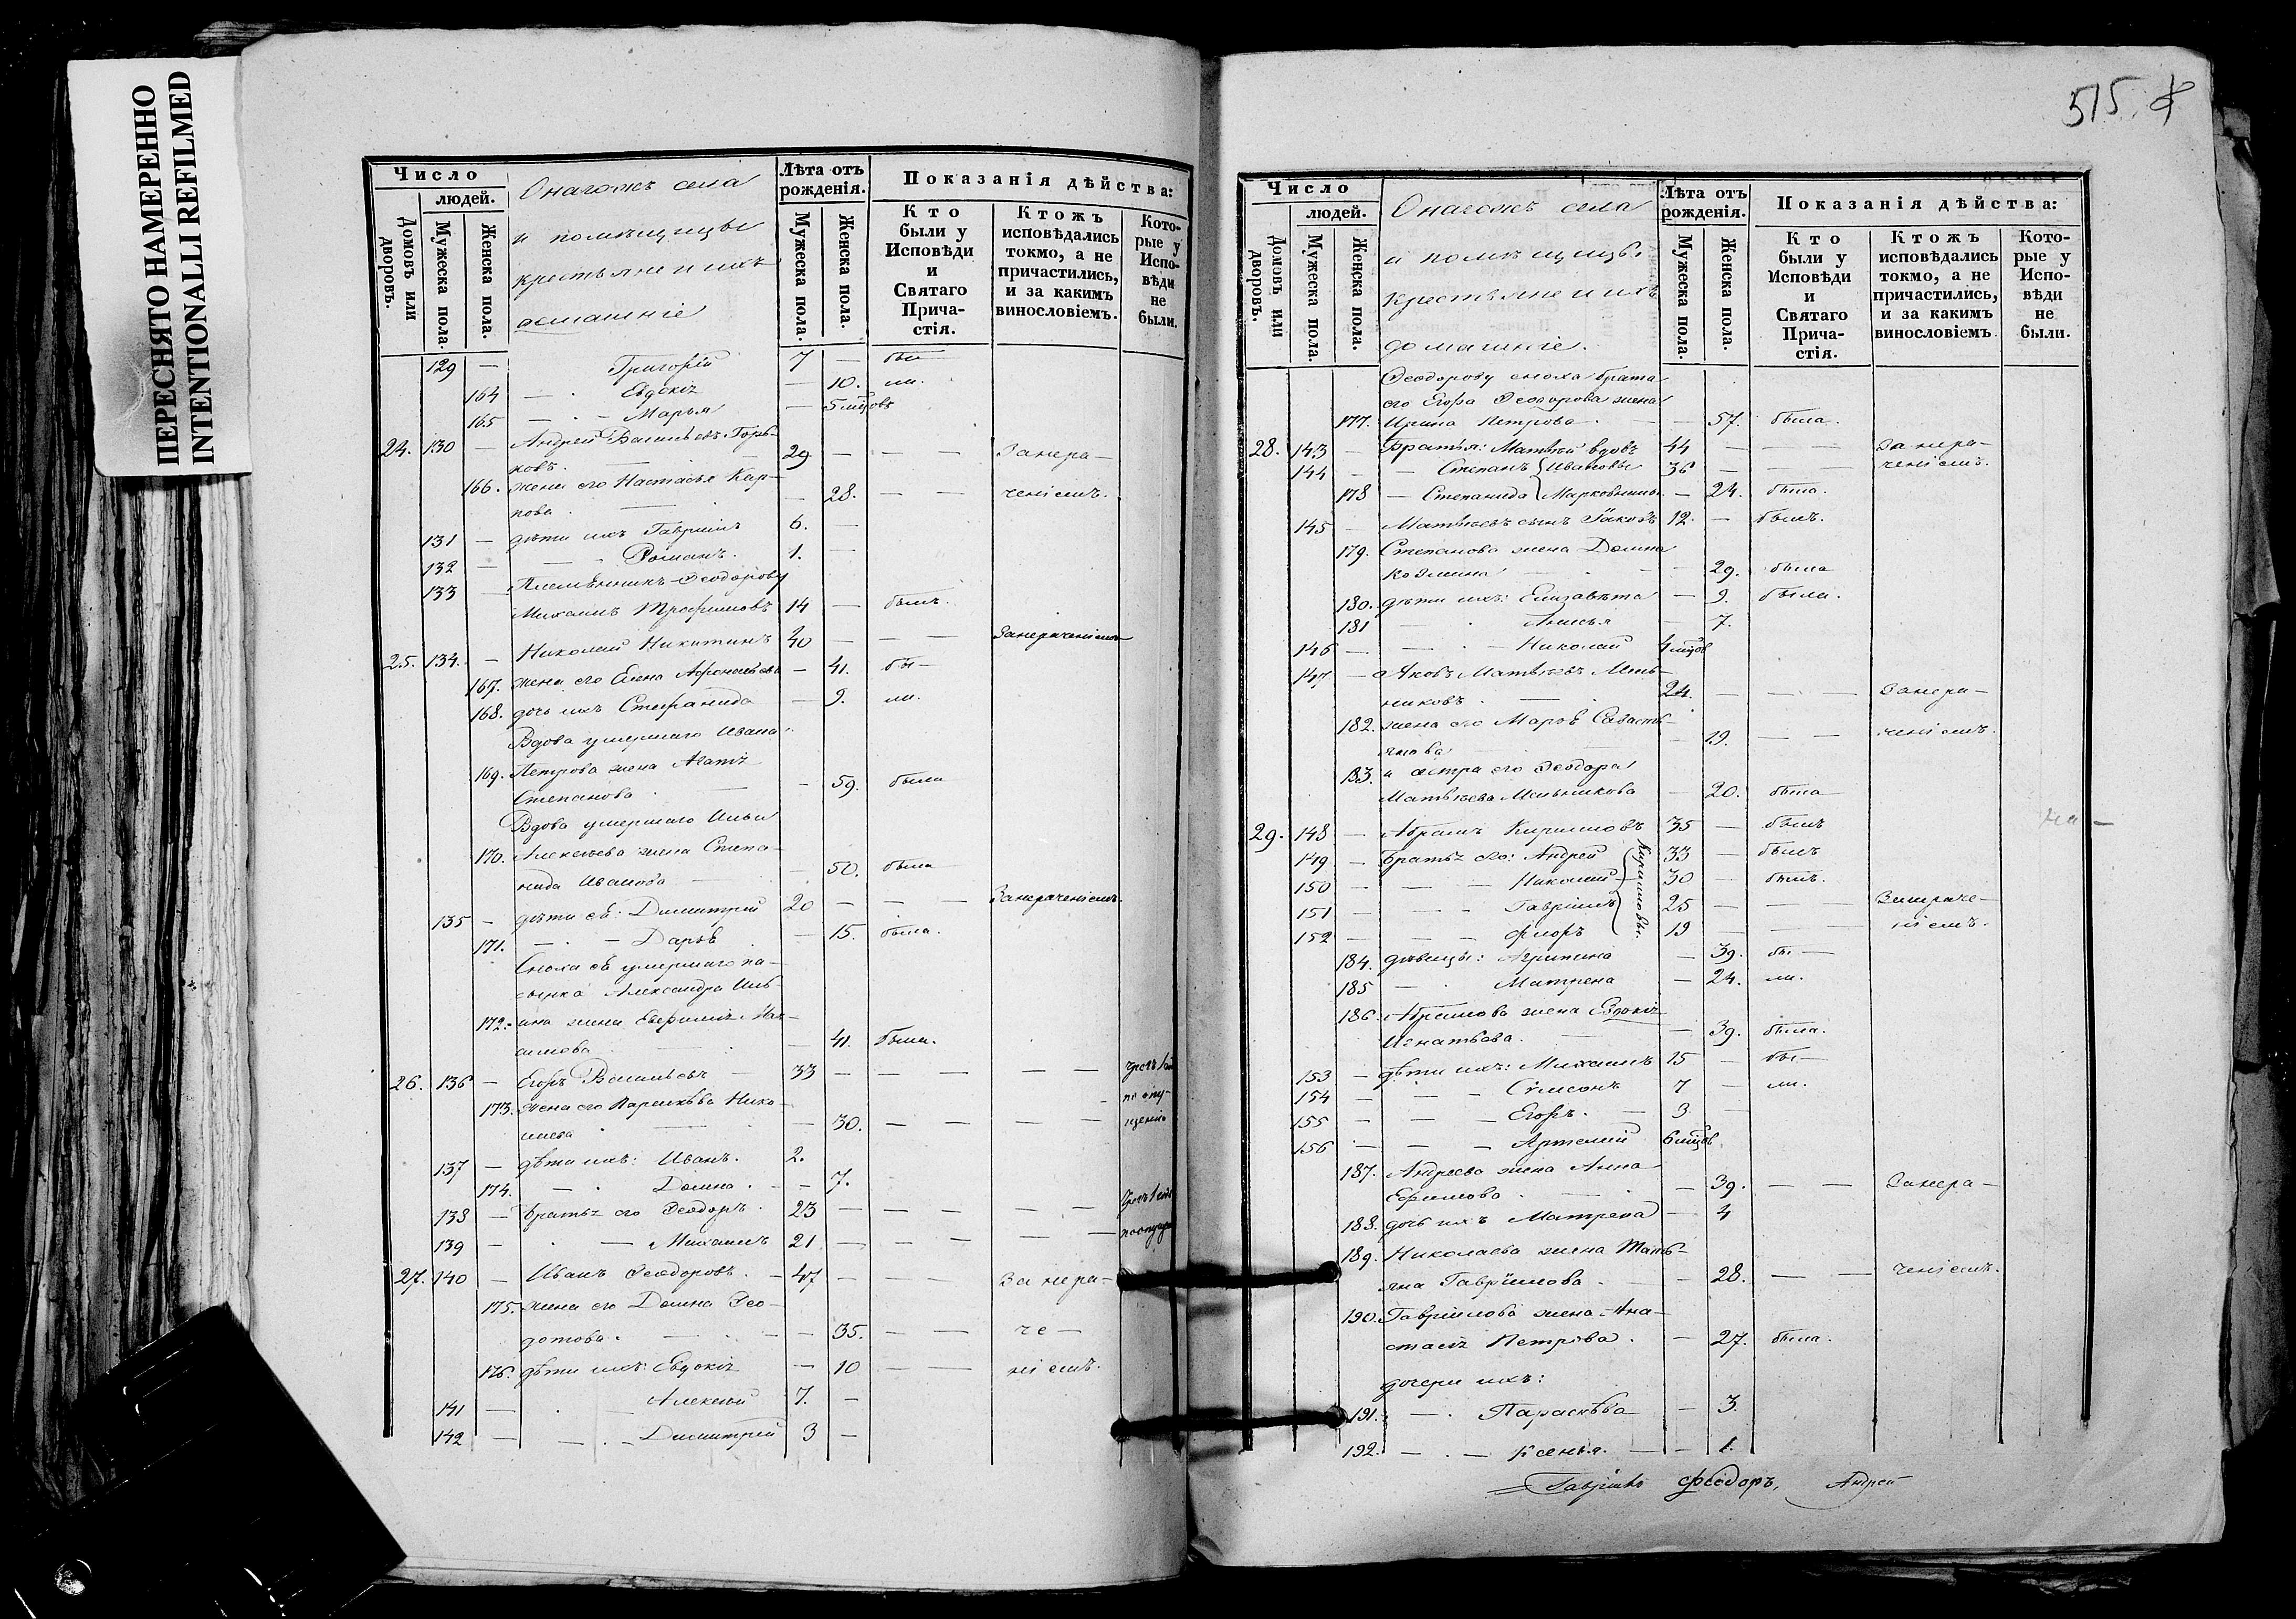 ПЕРЕСНЯТО НАМЕРЕННО
INTENTIONALLI REFILMED
Число
людей.
Домовъ или дворовъ.
Мужеска пола.
Женска пола.
Онагожъ села
и помѣщицы
крестьяне и ихъ
домашніе
Лѣта отъ рожденія.
Мужеска пола.
Женска пола.
Показанія дѣйства:
Кто были у Исповѣди и Святаго Прича-стія.
Ктожъ исповѣдались токмо, а не причастились, и за какимъ винословіемъ.
Кото-рые у Испо-вѣди не были.
129 — Григорій 7 — бы
164 — Евдокія — 10. ли.
165 — — Марья — 5 мцовъ
24. 130 — Андрей Васильевъ Горь-
ковъ. 29 — — — Занера-
166. жена его Настасья Кар-
пова. — 28. — — ченіемъ.
131 — дѣти ихъ Гавріилъ 6. —
132 — — Романъ. 1. —
133 — Племянникъ Ѳеодорову
Михаилъ Трофимовъ 14 — былъ.
25. 134. — Николай Никитинъ 40 — — — Занераченіемъ
167. жена его Елена Афонасьева — 41. бы—
168. дочь ихъ Стефанида — 9. ли.
Вдова умершаго Ивана
169. Петрова жена Агафія
Степанова — 59. была
Вдова умершаго Ильи
170. Алексѣева жена Степа-
нида Иванова — 50. была
135 — дѣти ея: Димитрій 20 — — — Занераченіемъ.
171. — — Дарья — 15. была.
Сноха ея умершаго па-
сынка Александра Иль-
172. ина жена Евфимія Мак-
симова — 41. была.
26. 136 — Егоръ Васильевъ 33 — — — — —
173. жена его Параскѣва Нико-
лаева — 30. — — — —
по опу-
щенію
137 — дѣти ихъ: Иванъ. 2.
174. — Домна. — 7.
138 — Братья его Ѳеодоръ. 23 — — — — —
139 — — Михаилъ 21 — — — — —
27. 140 — Иванъ Ѳеодоровъ. 47 — — Занера-
175. жена его Домна Ѳео-
дотова. — 35. — — че—
176. дѣти ихъ: Евдокія — 10 — — ніемъ.
141 — Алексѣй 7. —
142 — — Димитрій 3 —
515.
Число
людей.
Домовъ или дворовъ.
Мужеска пола.
Женска пола.
Онагожъ села
и помѣщицы
крестьяне и ихъ
домашніе.
Лѣта отъ рожденія.
Мужеска пола.
Женска пола.
Показанія дѣйства:
Кто были у Исповѣди и Святаго Прича-стія.
Ктожъ исповѣдались токмо, а не причастились, и за какимъ винословіемъ
Кото-рые у Испо-вѣди не были.
Ѳеодорову сноха брата
его Егора Ѳеодорова жена
177. Ирина Петрова — 57. была.
28. 143 — Братья: Матвѣй вдовъ 44 — — Занера-
144 — Степанъ Ивановы 36 — — ченіемъ.
178 — Степанида Марковны — 24. была.
145 — Матвѣевъ сынъ Іаковъ 12. — былъ.
179. Степанова жена Домна
Козмина — 29. была
180. дѣти ихъ: Елизавѣта — 9. была.
181 — Анисья — 7.
146 — — Николай 4 мцов
147 — Яковъ Матвѣевъ Мель-
никовъ. 24. — — — Занера-
182. жена его Марѳа Савасть-
янова — 19. — — ченіемъ.
183. и сестра его Ѳеодора
Матвѣева Мельникова — 20. была
29. 148 — Абрамъ Кириловъ 35 — былъ
149 — Братья его: Андрей 33 — былъ
150 — — Николай 30 — былъ.
151 — — Гавріилъ 25 — — Занераче-
152 — — Флоръ 19 — — ніемъ.
Кириловы.
184. дѣвицы: Агрипина — 39. бы—
185 — Матрена — 24. ли.
186. Абрамова жена Евдокія
Игнатьева. — 39. была.
153 — дѣти ихъ: Михаилъ 15 — бы—
154 — — Сѵмеонъ 7 — ли.
155 — — Егоръ. 3 —
156 — — Артемій 6 мцов
187. Андреева жена Анна
Ефимова. — 39. — — Занера-
188. дочь ихъ Матрена — 4
189. Николаева жена Тать-
яна Гаврилова. — 28. — — ченіемъ.
190. Гавріилова жена Ана-
стасія Петрова. — 27. была.
дочери ихъ:
191. — Параскѣва — 3.
192. — Ксенья. — 1.
Гавріилъ Ѳеодоръ, Андрей